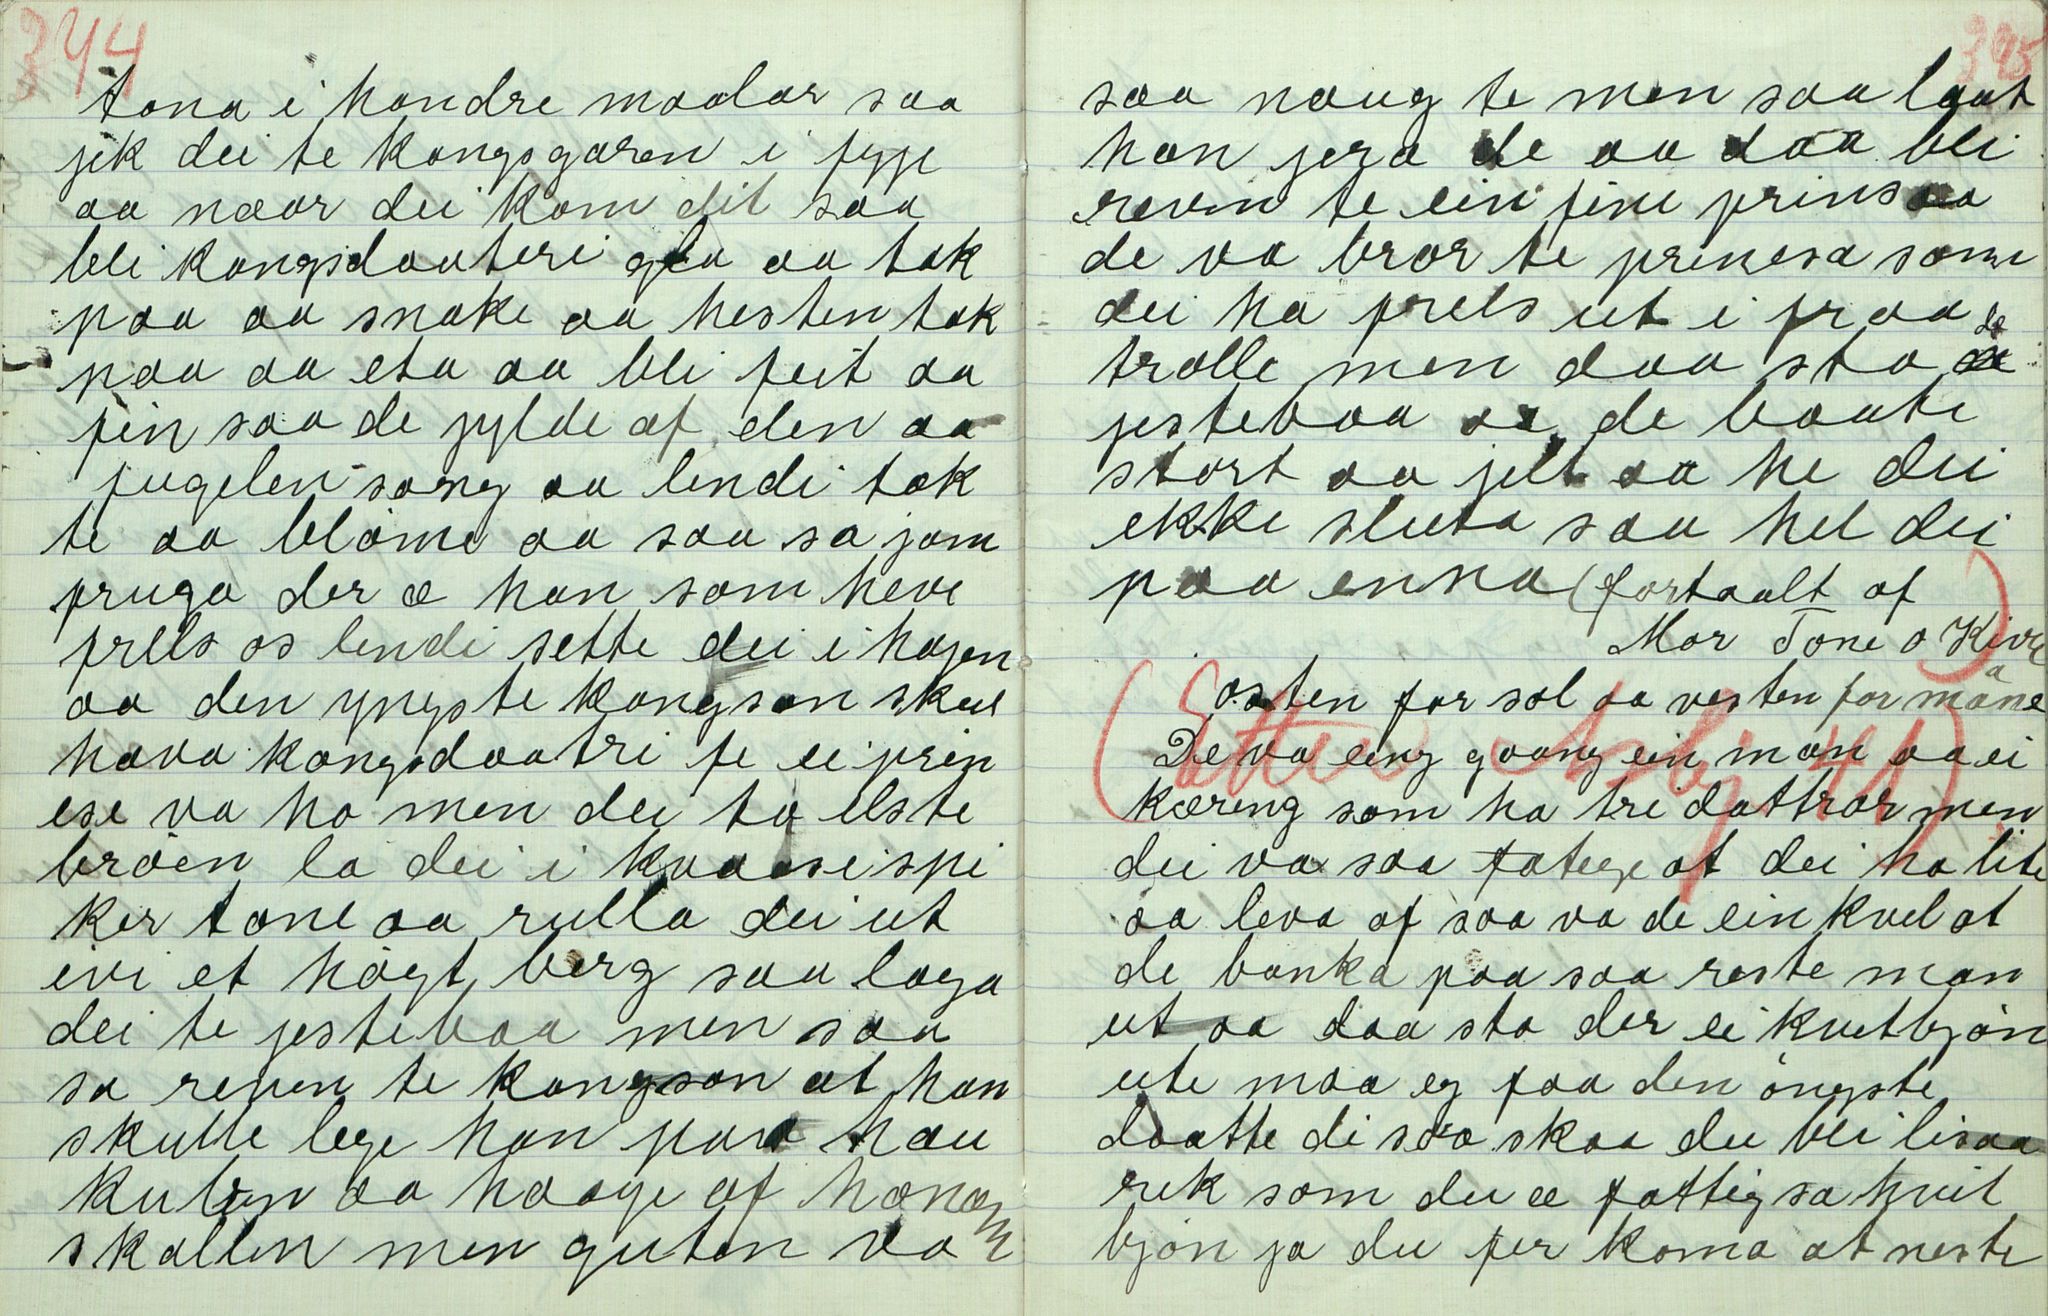 344
tona i handre maalar saa
jik dei te kongsgaren i jyje
aa naar dei kom dit saa
bli kongsdaateri gla aa tok
paa aa snake aa hesten tok
paa aa eta aa bli feit aa
fin saa de jylde af den aa
fugelen song aa lendi tok
te aa blome aa saa sa jom
fruga der æ han som heve
frels os lendi sette dei i hagen
aa den yngste kongson skul
hava kongsdaatri fe ei prin
ese va ho men dei to elste
broen la dei i kvaasispi
ker tone aa rulla dei ut
ivi et høgt berg saa laga
dei te jestebaa men saa
sa reven te kongson at han
skulle lege han paa hau
kubben aa hagge af honom
skallen men guten va
345
saa naug te men saa laut
han jera de aa daa bli
reven te ein fine prins aa
de va bror te prinsesa som
dei ha frels ut i fraa
trolle men daa sto de
jestebaa aa de baate
stort aa jilt aa he dei
ekke sluta saa hel dei
paa enna (fortaalt af
Mor Tone o Kivle)
østen for sol aa vesten for måne
De va eing gaang ein man aa ei
kæring som ha tri dottrar men
dei va saa fatige at dei ha lite
aa leva af saa va de ein kvel at
de banka paa saa reste man
ut aa daa sto der ei kvitbjøn
ute maa eg faa den øngste
daatte di saa skaa du bli lisaa
rik som du æ fattig sa kvit
bjøn ja du fer koma at neste